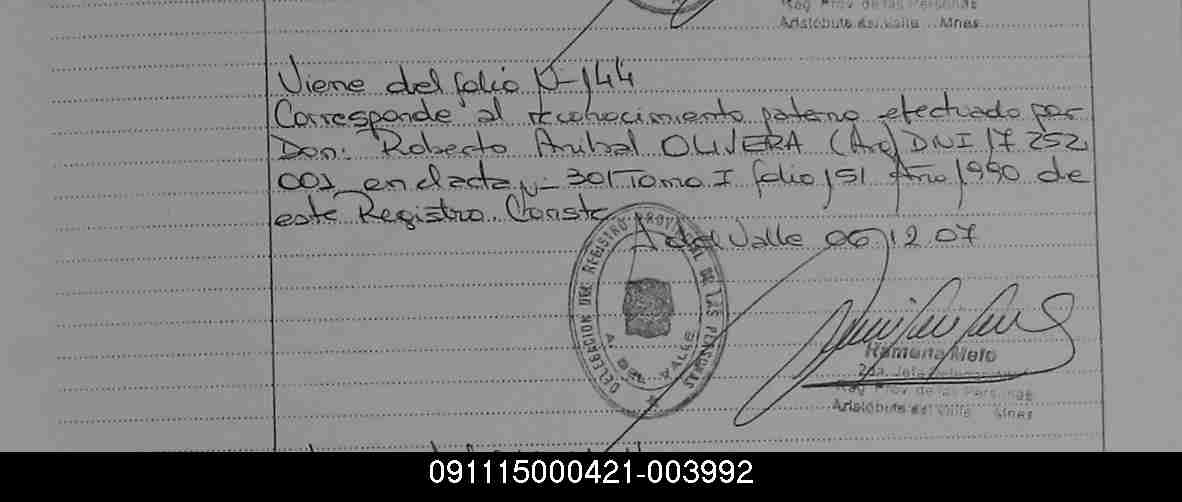 Reg. Prov de las Personas
Aristóbulo del Valle Mnes
Viene del folio Nº 144
Corresponde al reconocimiento paterno efectuado por
Don: Roberto Anibal OLIVERA (Arg) DNI 17 252
001 en el acta Nº 301 Tomo I folio 151 Año 1990 de
este Registro. Conste
A del Valle 06 12 07
DELEGACION DEL REGISTRO PROVINCIAL DE LAS PERSONAS
A. DEL VALLE
Ramona Melo
2da. Jefa
Reg. Prov de las Personas
Aristóbulo del Valle Mnes
091115000421-003992